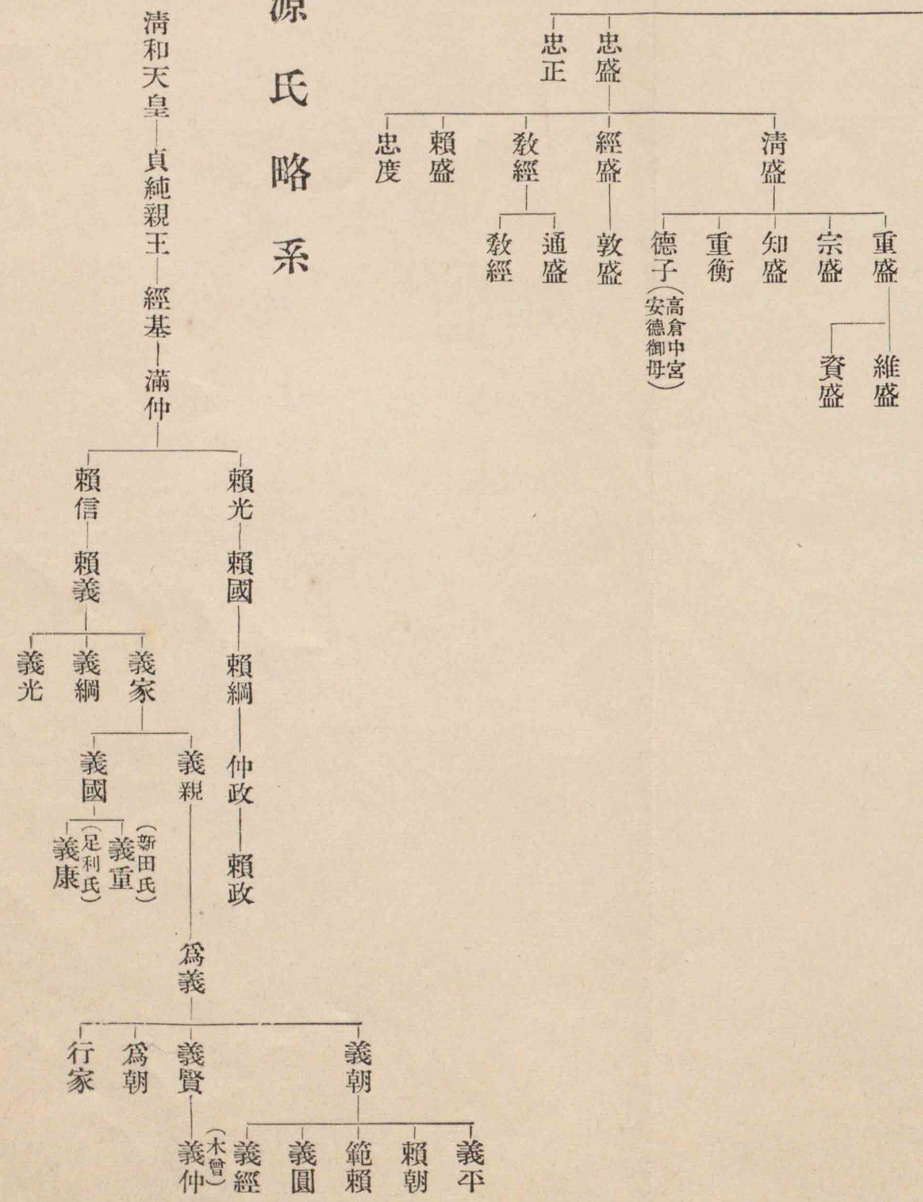 忠盛
忠正
清盛
經盛
敎經
賴盛
忠度
重盛
宗盛
知盛
重衡
德子(高倉中宮安德御母)
敦盛
通盛
敎經
維盛
資盛
源氏略系
淸和天皇
貞純親王
經基
滿仲
賴光
賴國
賴綱
仲政
賴政
賴信
賴義
義家
義綱
義光
義親
義國
義重(新田氏)
義康(足利氏)
爲義
義朝
義賢
爲朝
行家
義平
賴朝
範賴
義圓
義經
義仲(木曾)